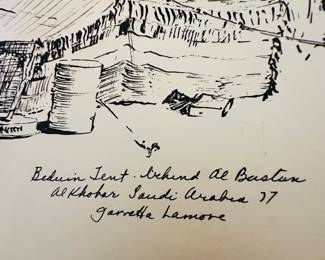 Beduin Tent. behind Al Bustan
Al Khobar Saudi Arabia 77
Garretta Lamore